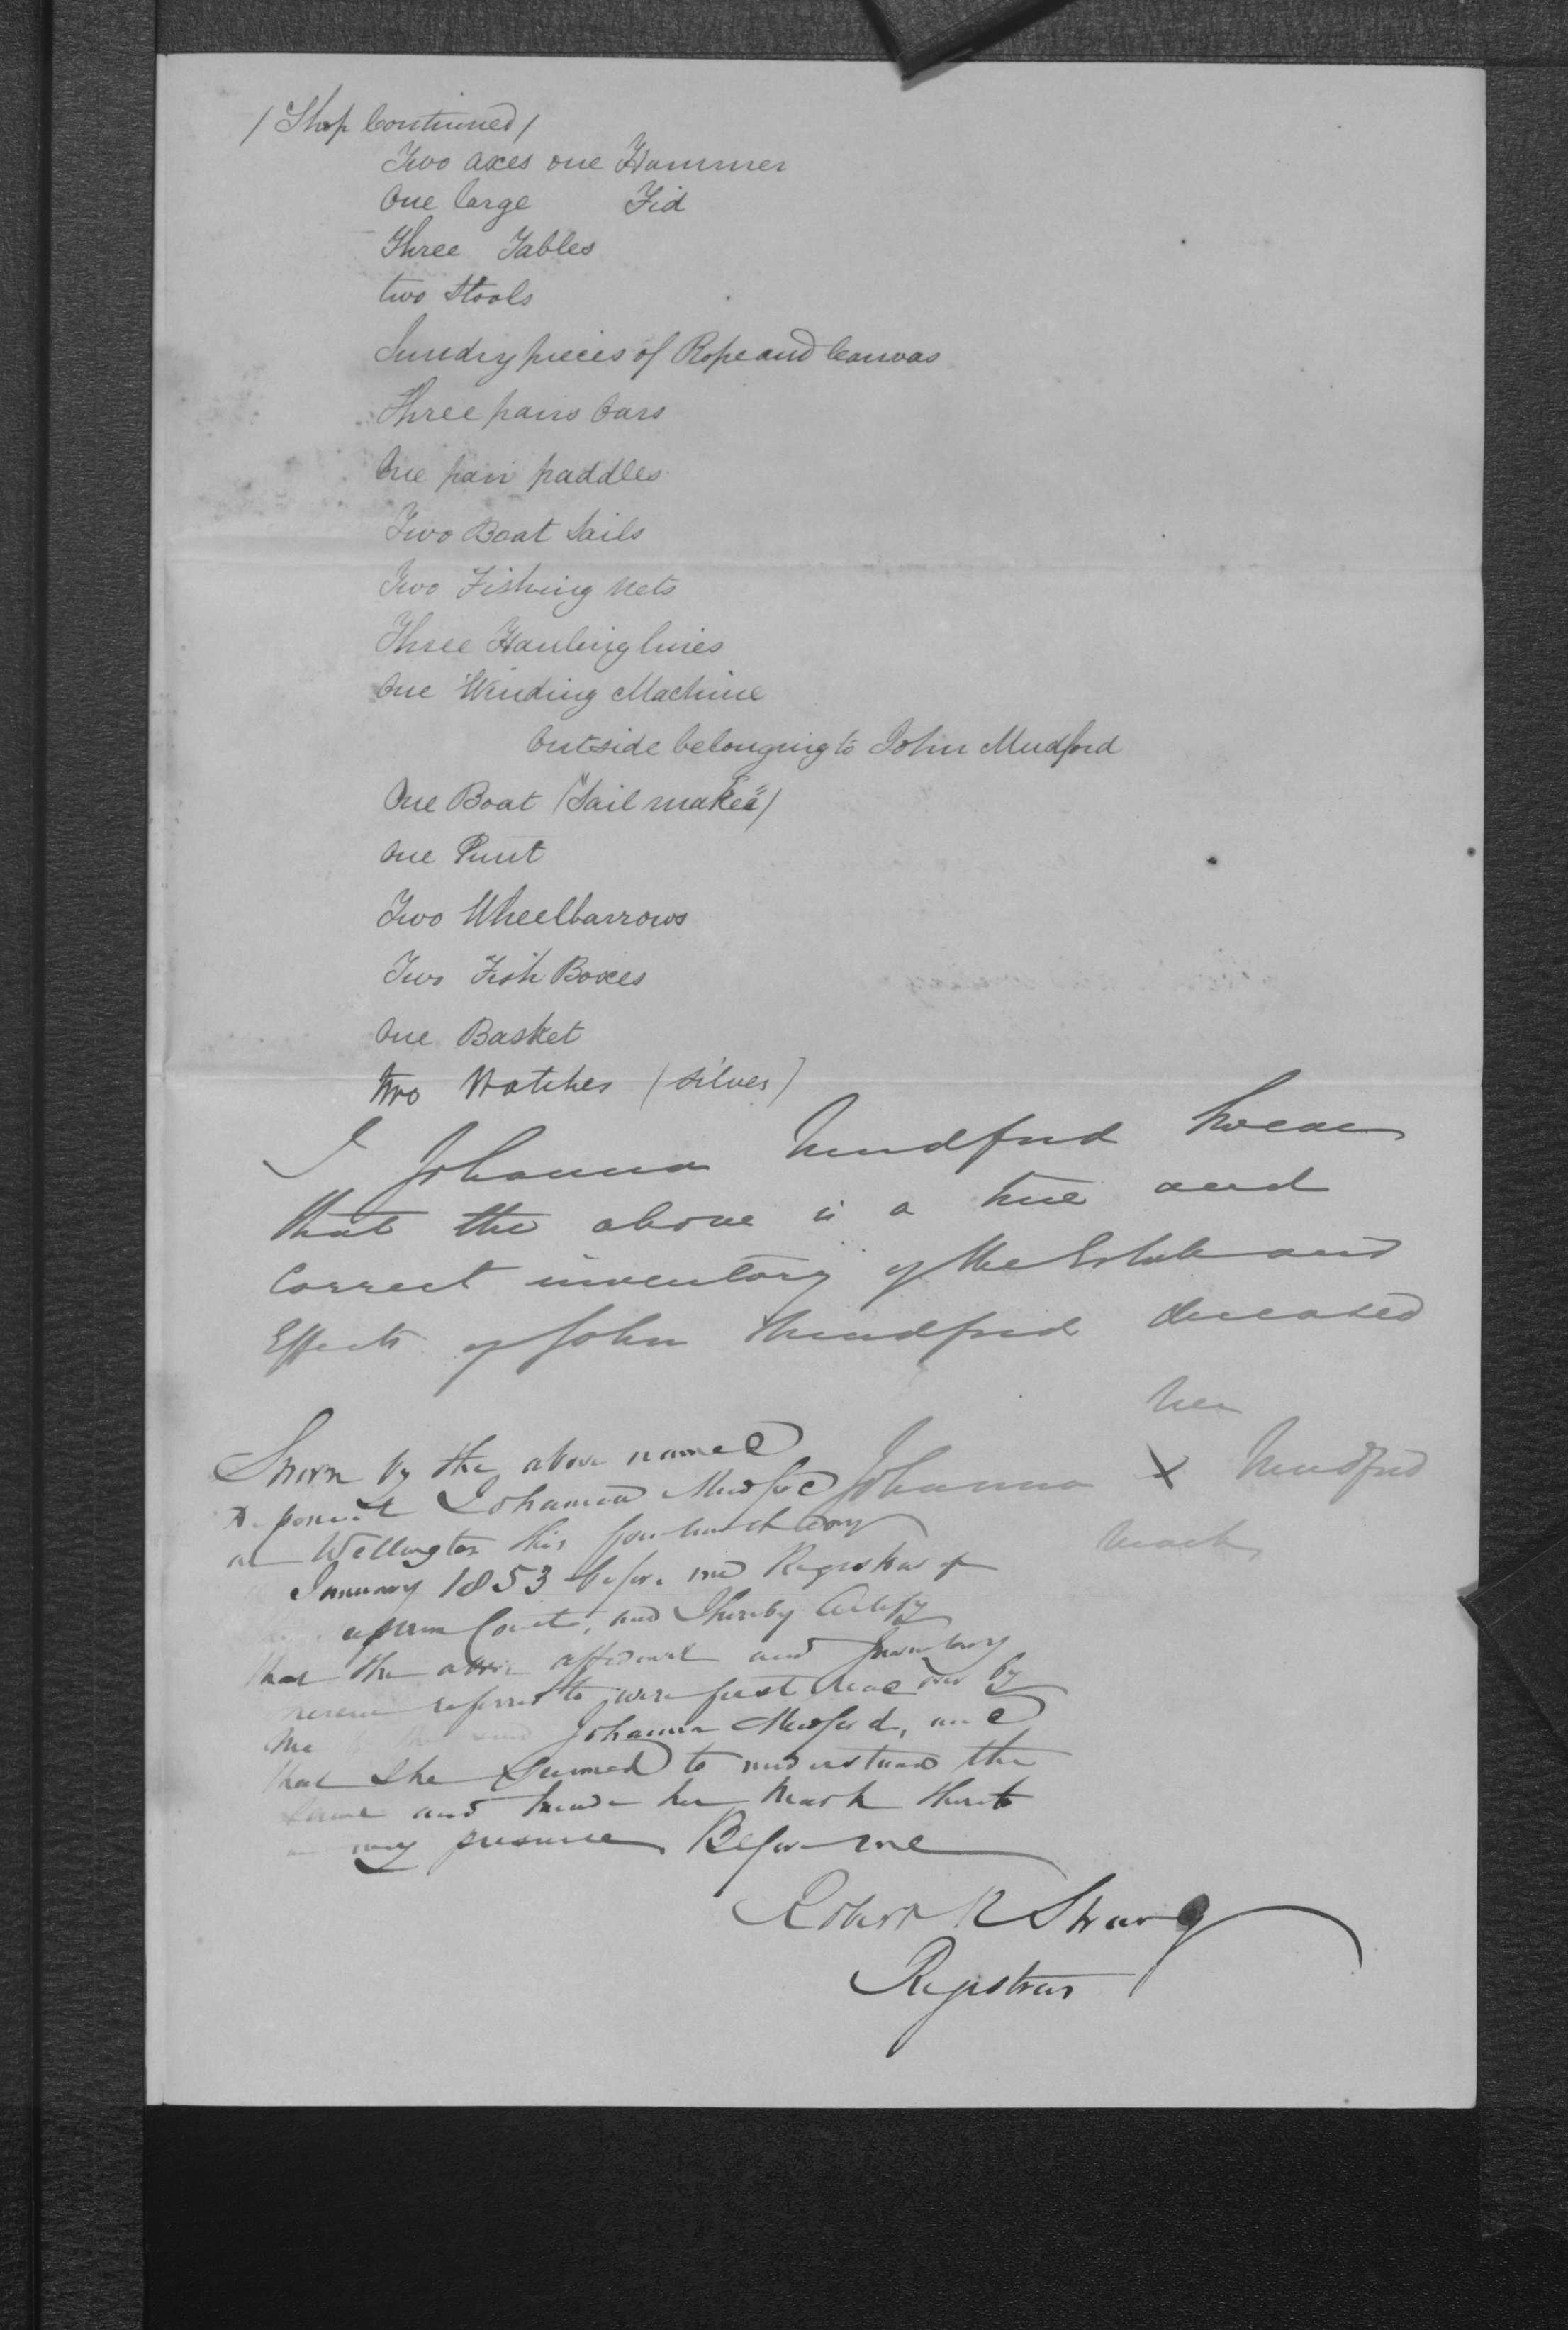 / Shop Continued /
Two axes one Hammer
One large Fid
Three Tables
two Stools
Sundry pieces of Rope and Canvas
Three pairs Oars
One pair paddles
Two Boat Sails
Two Fishing Nets
Three Hauling lines
One Winding Machine
Outside belonging to John Mudford
One Boat ("Sail maker")
One Punt
Two Wheelbarrows
Two Fish Boxes
One Basket
two Watches (silver)
I Johanna Mudford swear
that the above is a true and
Correct inventory of the Estate and
Effects of John Mudford deceased
her
Johanna X Mudford
mark
Sworn by the above named
deponent Johanna Mudford
at Wellington this fourteenth day
January 1853 before me Registrar of
Supreme Court, and I hereby Certify
that the above affidavit and Inventory
herein referred to were first read over by
me Johanna Mudford, and
that she seemed to understand the
same and made her mark thereto
in my presence Before me
Robert R Strang
Registrar